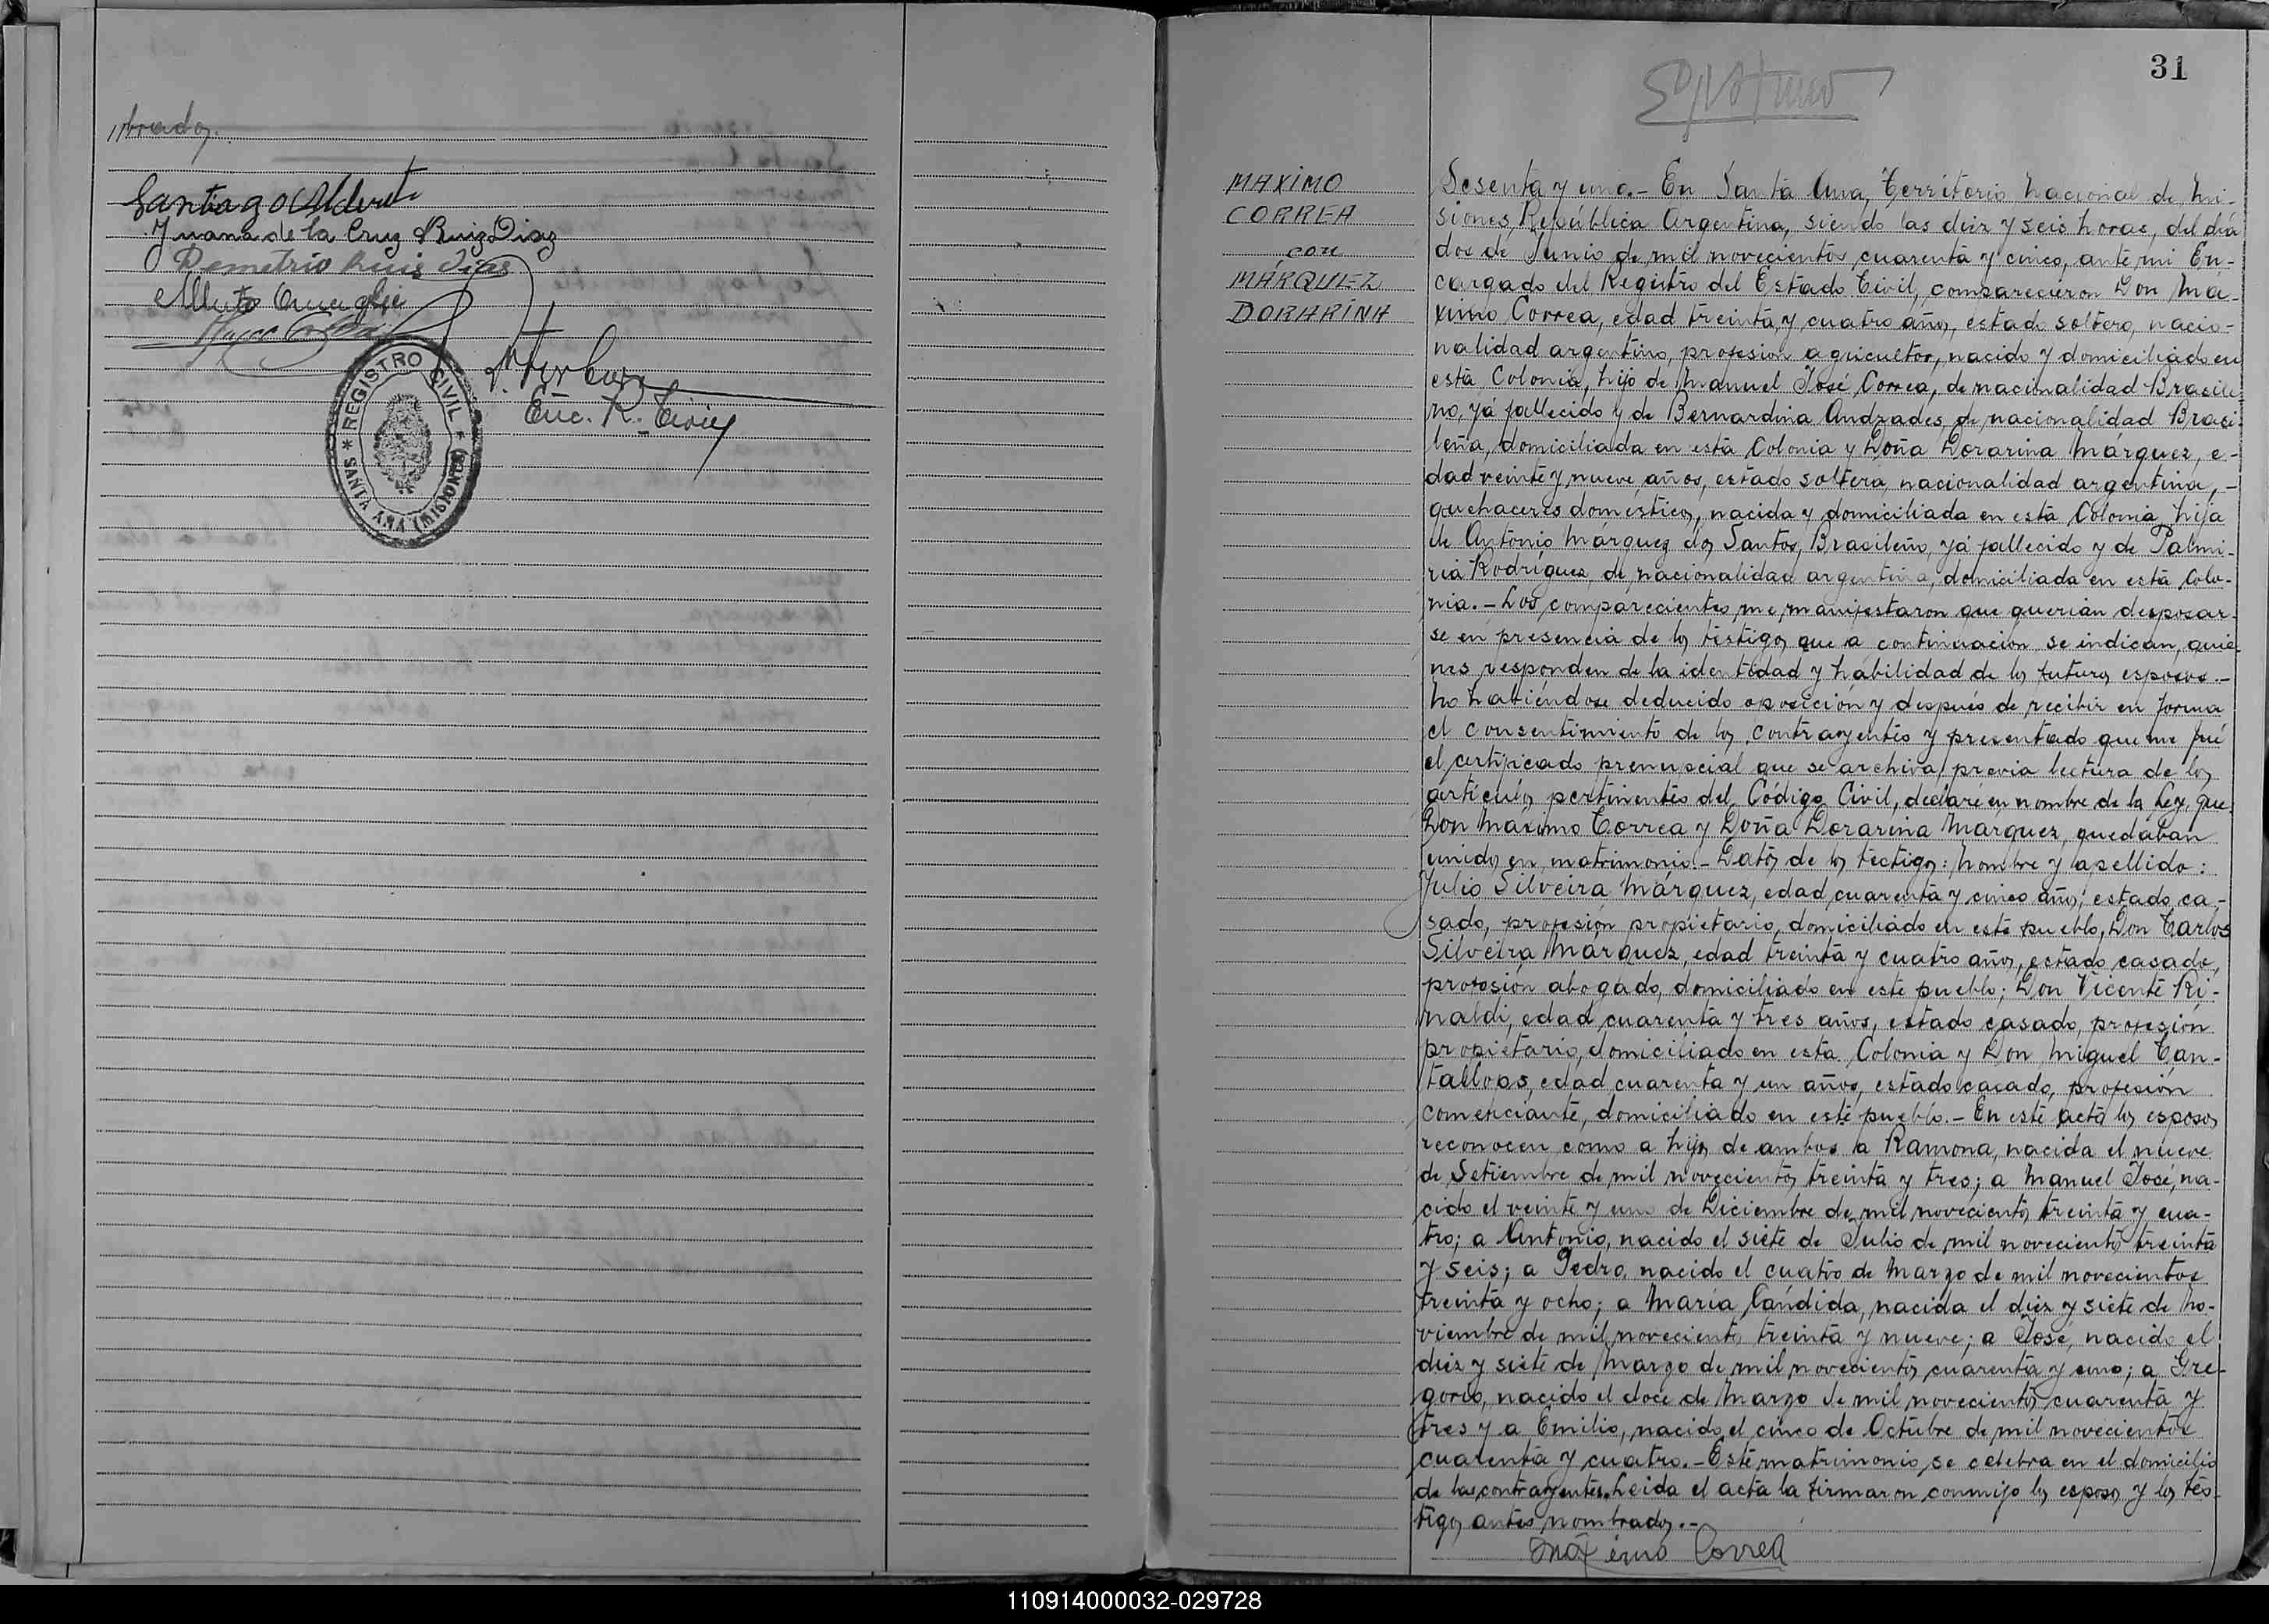 Santiago Alderete
Juana de la Cruz Ruiz Diaz
Demetrio Ruis Dias
Enc. R. Civil
* REGISTRO CIVIL *
SANTA ANA (MISIONES)
31
MAXIMO
CORREA
con
MÁRQUEZ
DORARINA
Sesenta y uno.- En Santa Ana, Territorio Nacional de Mi-
siones, República Argentina, siendo las diez y seis horas, del día
dos de Junio de mil novecientos cuarenta y cinco, ante mi En-
cargado del Registro del Estado Civil, comparecieron Don Má-
ximo Correa, edad treinta y cuatro años, estado soltero, nacio-
nalidad argentino, profesión agricultor, nacido y domiciliado en
esta Colonia, hijo de Manuel José Correa, de nacionalidad Brasile-
no, yá fallecido y de Bernardina Andrades, de nacionalidad Brasi-
leña, domiciliada en esta Colonia y Doña Dorarina Márquez, e-
dad veinte y nueve años, estado soltera, nacionalidad argentina, -
quehaceres domésticos, nacida y domiciliada en esta Colonia, hija
de Antonio Márquez dos Santos, Brasileño, yá fallecido y de Palmi-
ria Rodríguez, de nacionalidad argentina, domiciliada en esta Colo-
nia.- Los comparecientes me manifestaron que querían desposar-
se en presencia de los testigos que a continuación se indican, quie-
nes responden de la identidad y habilidad de los futuros esposos.-
No habiéndose deducido oposición y después de recibir en forma
el consentimiento de los contrayentes y presentado que me fué
el certificado prenupcial que se archiva, previa lectura de los
artículos pertinentes del Código Civil, declaré en nombre de la Ley, que
Don Maximo Correa y Doña Dorarina Marquez, quedaban
unidos en matrimonio.- Datos de los testigos: Nombre y apellido:
Julio Silveira Márquez, edad cuarenta y cinco años, estado ca-
sado, profesión propietario, domiciliado en este pueblo, Don Carlos
Silveira Marquez, edad treinta y cuatro años, estado casado,
profesión abogado, domiciliado en este pueblo; Don Vicente Ri-
naldi, edad cuarenta y tres años, estado casado, profesión
propietario, domiciliado en esta Colonia y Don Miguel Can-
tallops, edad cuarenta y un años, estado casado, profesión
comerciante, domiciliado en este pueblo.- En este acta los esposos
reconocen como a hijos de ambos a Ramona, nacida el nueve
de Setiembre de mil novecientos treinta y tres; a Manuel José, na-
cido el veinte y uno de Diciembre de mil novecientos treinta y cua-
tro; a Antonio, nacido el siete de Julio de mil novecientos treinta
y seis; a Pedro, nacido el cuatro de Marzo de mil novecientos
treinta y ocho; a María Cándida, nacida el diez y siete de No-
viembre de mil novecientos treinta y nueve; a José, nacido el
diez y siete de Marzo de mil novecientos cuarenta y uno; a Gre-
gorio, nacido el doce de Marzo de mil novecientos cuarenta y
tres y a Emilio, nacido el cinco de Octubre de mil novecientos
cuarenta y cuatro.- Este matrimonio se celebra en el domicilio
de los contrayentes. Leida el acta la firmaron conmigo los esposos y los tes-
tigos antes nombrados.-
Máximo Correa
110914000032-029728